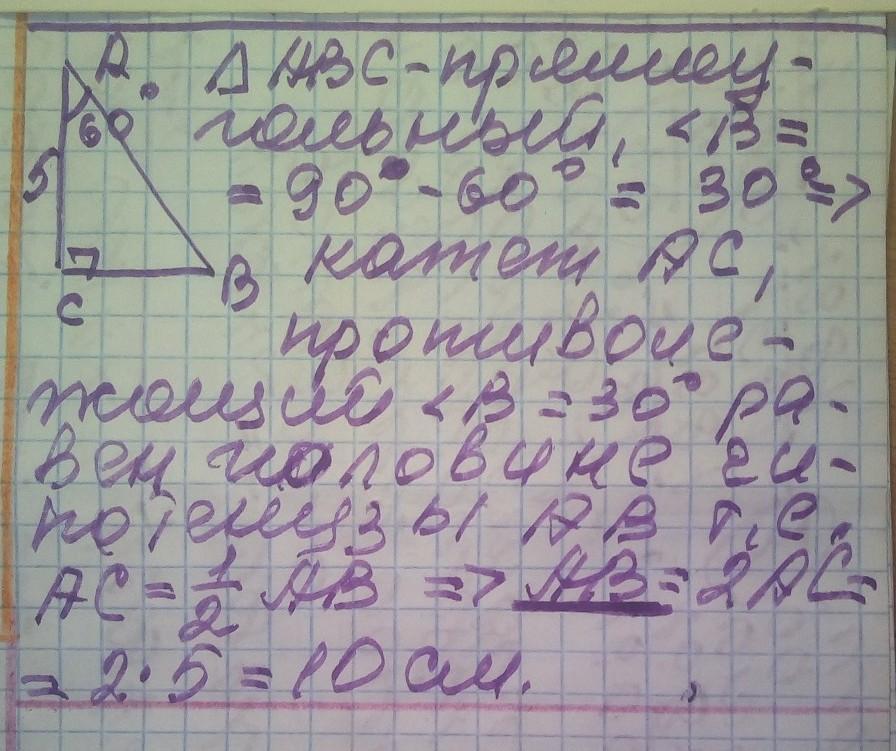 A
60°
5
C
B
Δ ABC - прямоу-
гольный, <B =
= 90° - 60° = 30° =>
катет AC,
противоле-
жащий <B = 30° ра-
вен половине ги-
потенузы AB т.е.
AC = 1/2 AB => AB = 2AC =
= 2·5 = 10 см.